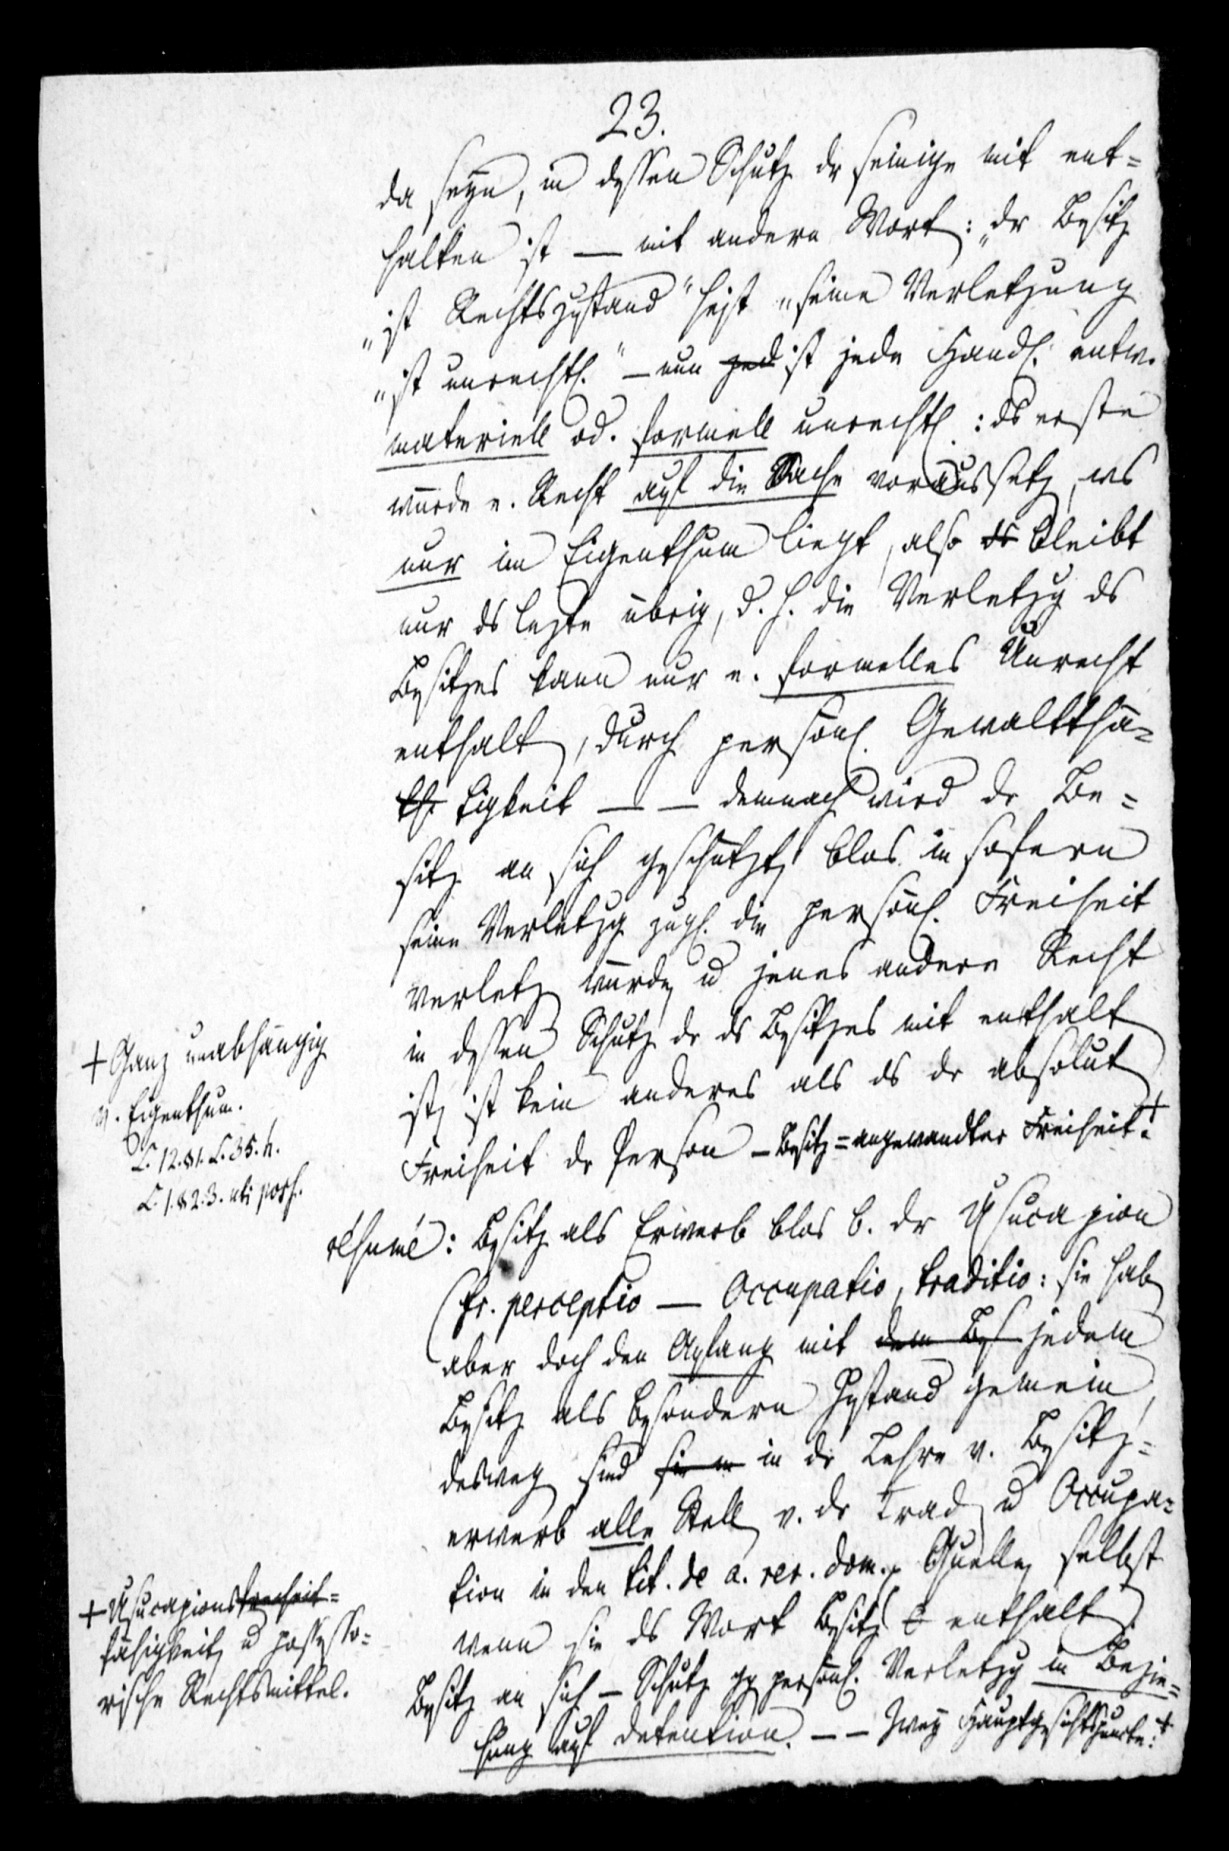 23.
da seyn, in dessen Schutz dr seinige mit ent=
halten ist — mit andern Wort: „dr Besitz
„ist Rechtszustand" heist „seine Verletzung
„ist unrechtl." — nun jed ist jede Handl. entw.
materiell od. formell unrechtl.: ds erste
wurde e. Recht auf die Sache voraussetz, ws
nur im Eigenthum liegt, also ds bleibt
nur ds lezte übrig, d. h. die Verletzg ds
Besitzes kann nur e. formelles Unrecht
enthalt, durch persönl. Gewalttha=
th. tigkeit — — demnach wird dr Be=
sitz an sich geschützt blos in sofern
seine Verletzg zugl. die persönl. Freiheit
verletz würde, u jenes andere Recht
in dessen Schutz dr ds Besitzes mit enthalt
ist, ist kein anderes als ds dr absolut
Freiheit dr Person — Besitz = angewandter Freiheit.+
+ Ganz unabhängig
v. Eigenthum.
L. 12. §1. L. 35. h.
L. 1. §2. 3. uti poss.
résumé: Besitz als Erwerb blos b. dr Usucapion
(fr. perceptio — Occupatio, traditio: sie hab
aber doch den Anfang mit dem Bes jedem
Besitz als besondern Zustand gemein,
desweg sind sie in in dr Lehre v. Besitz=
erwerb alle Stell v. dr Trad u Occupa=
tion in den tit. de a. rer. dom. Quelle, selbst
wenn sie ds Wort Besitz enthalt
Besitz an sich — Schutz gg persönl. Verletzg in Bezie=
hung auf detention. — — Zwey Hauptgesichtspunkte:+
+ Usucapionsfreiheit=
fähigkeit, u possesso=
rische Rechtsmittel.